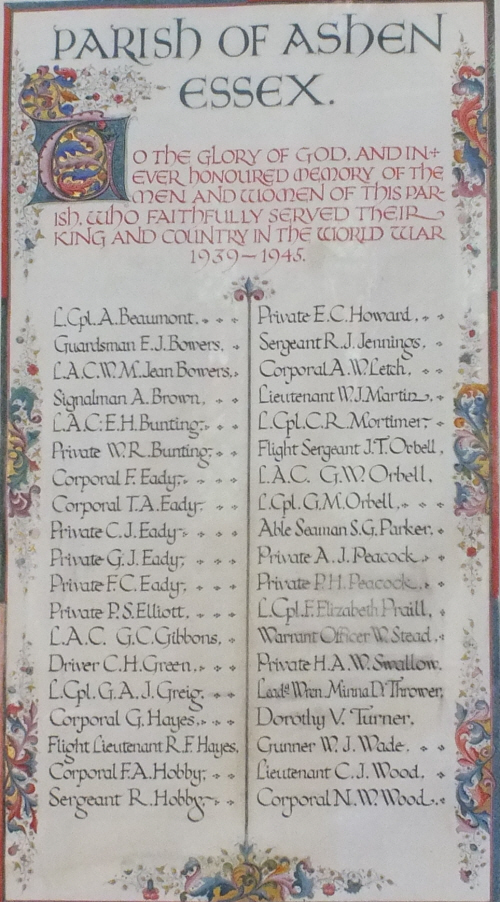 PARISH OF ASHEN
ESSEX.
TO THE GLORY OF GOD, AND IN
EVER HONOURED MEMORY OF THE
MEN AND WOMEN OF THIS PAR-
ISH, WHO FAITHFULLY SERVED THEIR
KING AND COUNTRY IN THE WORLD WAR
1939-1945.
L.Cpl. A. Beaumont.
Guardsman E.J. Bowers.
L.A.C.W. M. Jean Bowers.
Signalman A. Brown.
L.A.C. E.H. Bunting.
Private W.R. Bunting.
Corporal F. Eady.
Corporal T.A. Eady.
Private C.J. Eady.
Private G.J. Eady.
Private F.C. Eady.
Private P.S. Elliott.
L.A.C. G.C. Gibbons.
Driver C.H. Green.
L.Cpl. G.A.J. Greig.
Corporal G. Hayes.
Flight Lieutenant R.F. Hayes.
Corporal F.A. Hobby.
Sergeant R. Hobby.
Private E.C. Howard.
Sergeant R.J. Jennings.
Corporal A.W. Letch.
Lieutenant W.J. Martin.
L.Cpl. C.R. Mortimer.
Flight Sergeant J.T. Orbell.
L.A.C. G.W. Orbell.
L.Cpl. G.M. Orbell.
Able Seaman S.G. Parker.
Private A.J. Peacock.
Private P.H. Peacock.
L.Cpl. F. Elizabeth Praill.
Warrant Officer W. Stead.
Private H.A.W. Swallow.
Leadg Wren Minna D. Thrower.
Dorothy V. Turner.
Gunner W.J. Wade.
Lieutenant C.J. Wood.
Corporal N.W. Wood.